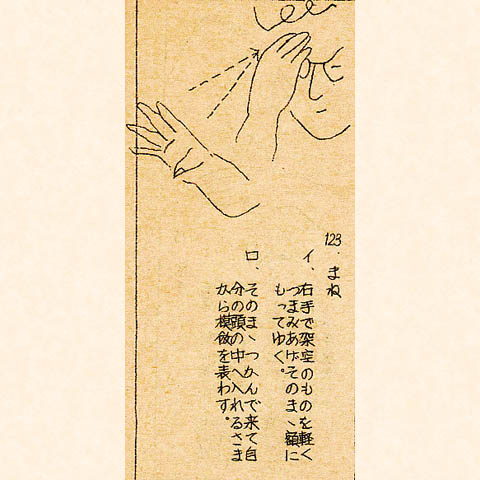 123. まね
イ、右手で架空のものを軽く
つまみあげそのまゝ額に
もってゆく。
ロ、そのまゝつかんで来て自
分の頭の中へ入れるさま
から模倣を表わす。